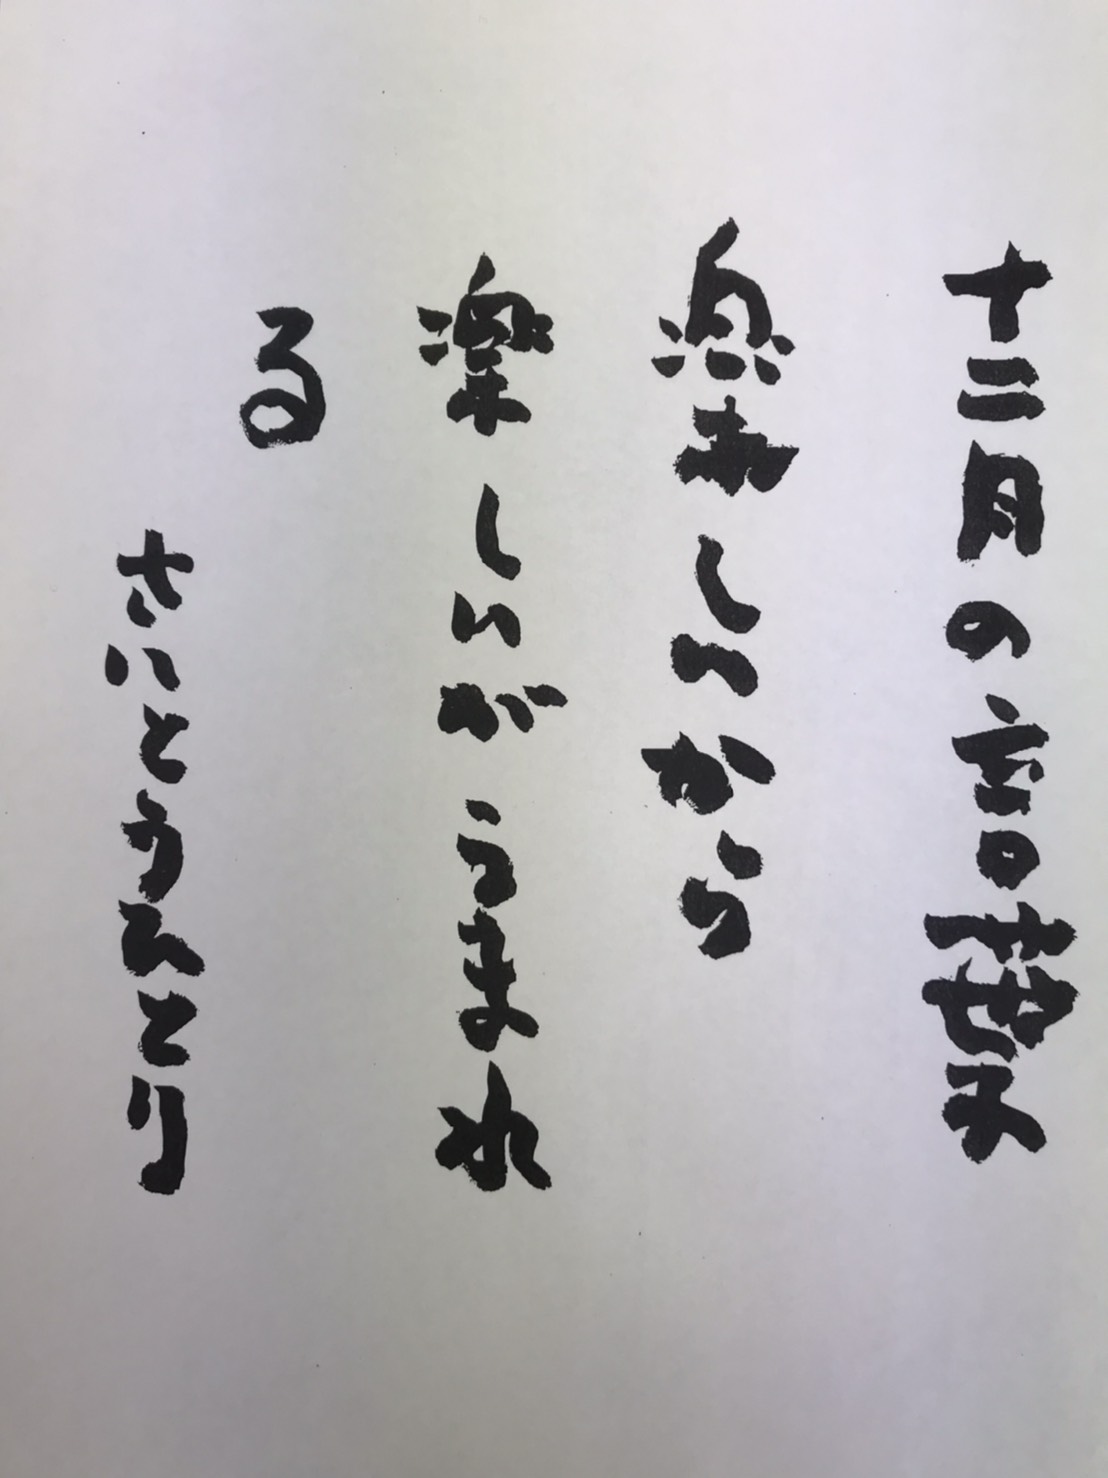 十二月の言葉
楽しいから
楽しいがうまれ
る
さいとうひとり